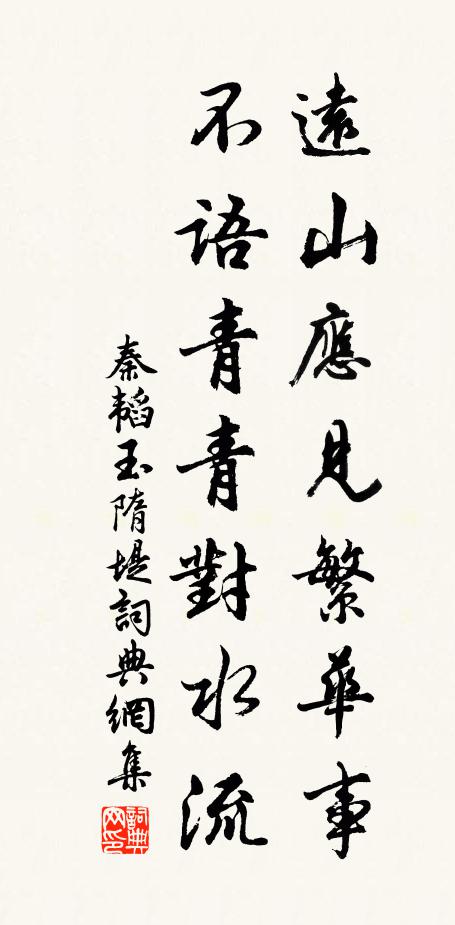 遠山應見繁華事
不語青青對水流
秦韜玉隋堤詞典網集
詞典网印